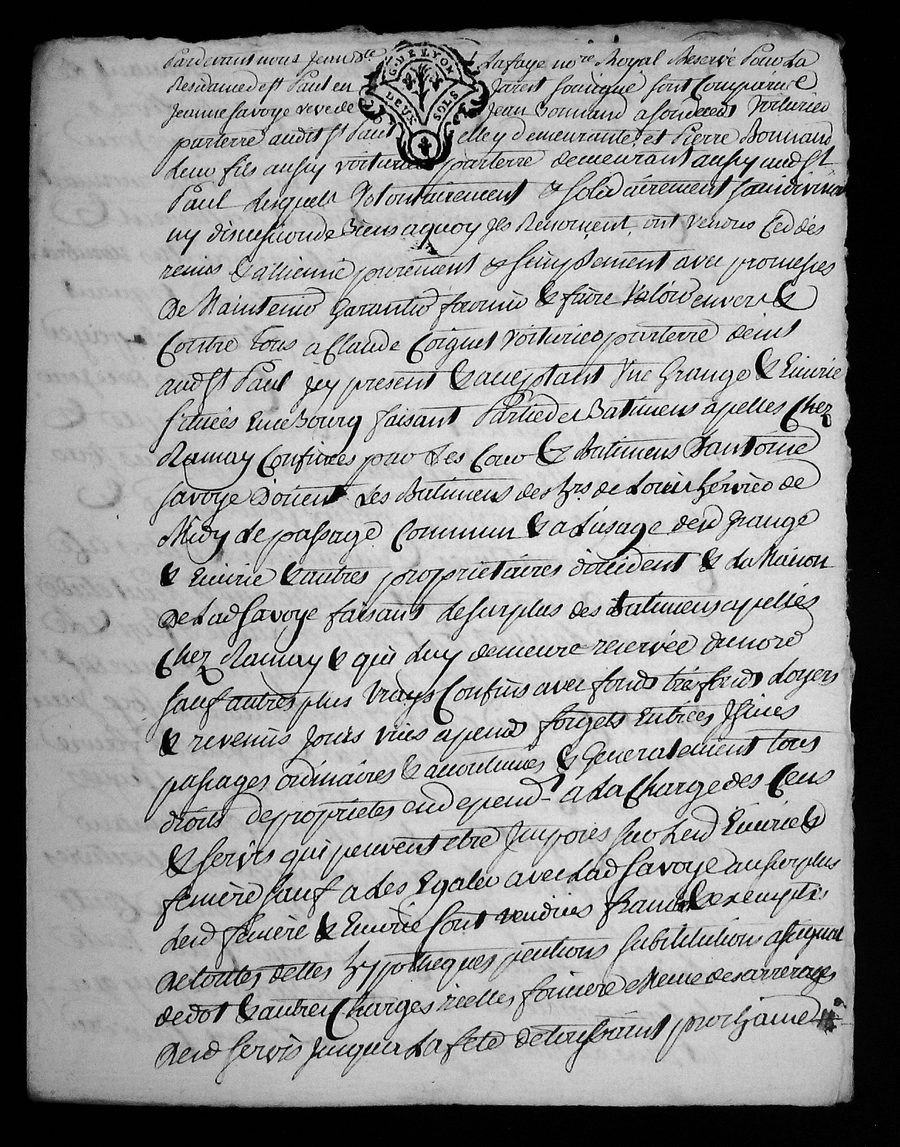 Pardevant nous Jean Bte Lafaye nore Royal Reservé Pour La
G. DE LYON
DEUX SOLS
Residance de st Paul en Jarest soussigné sont Comparües
Jeanne Savoye veve de Jean Bonnand a son deces Voiturier
par terre audit st Paul elle y demeurante, et Pierre Bonnand
leur fils aussy voiturier par terre demeurant aussy aud st
Paul Lesquels Volontairement & solidairement sans division
ny discussion de Biens a quoy Jls Renoncent, ont vendus Ced dés
remis & allienné purement & simplement avec promesses
De Maintenir Garantir fournir & faire Valoir envers &
Contre tous a Claude Coignet Voiturier par terre demt
aud st Paul jcy present & acceptant Une Grange & Ecurie
situées En ce Bourg faisant Partie des Batimens apellés Chez
Ramay Confinées par Les Cour & Batimens D'antoine
Savoye D'orient Les Batimens des hrs de Louis hervier de
Midy le passage Commun & a L'usage desd Grange
& Ecurie & autres proprietaires d'occident & La Maison
De Lad Savoye faisant le surplus des Batimens apellés
Chez Ramay & qui Luy demeure reservée du nord
sauf autres plus Vrays Confins avec fonds tréfonds Loyers
& revenus Jours vües apend forgets Entrées Jssües
passages ordinaires & accoutumés & Generalement tous
droits de proprietés en depend. a La Charge des Cens
& servis qui peuvent etre Jmposés sur Lesd Ecurie &
feniere sauf a Les Egaler avec Lad Savoye au surplus
Lesd feniere & Ecurie sont vendües franc & exemptes
De toutes dettes hypotheques pentions substitutions assignat
de dot & autres Charges réelles fonciere Meme des arrerages
Desd servis Jusqua La fete de toussaint prochaine